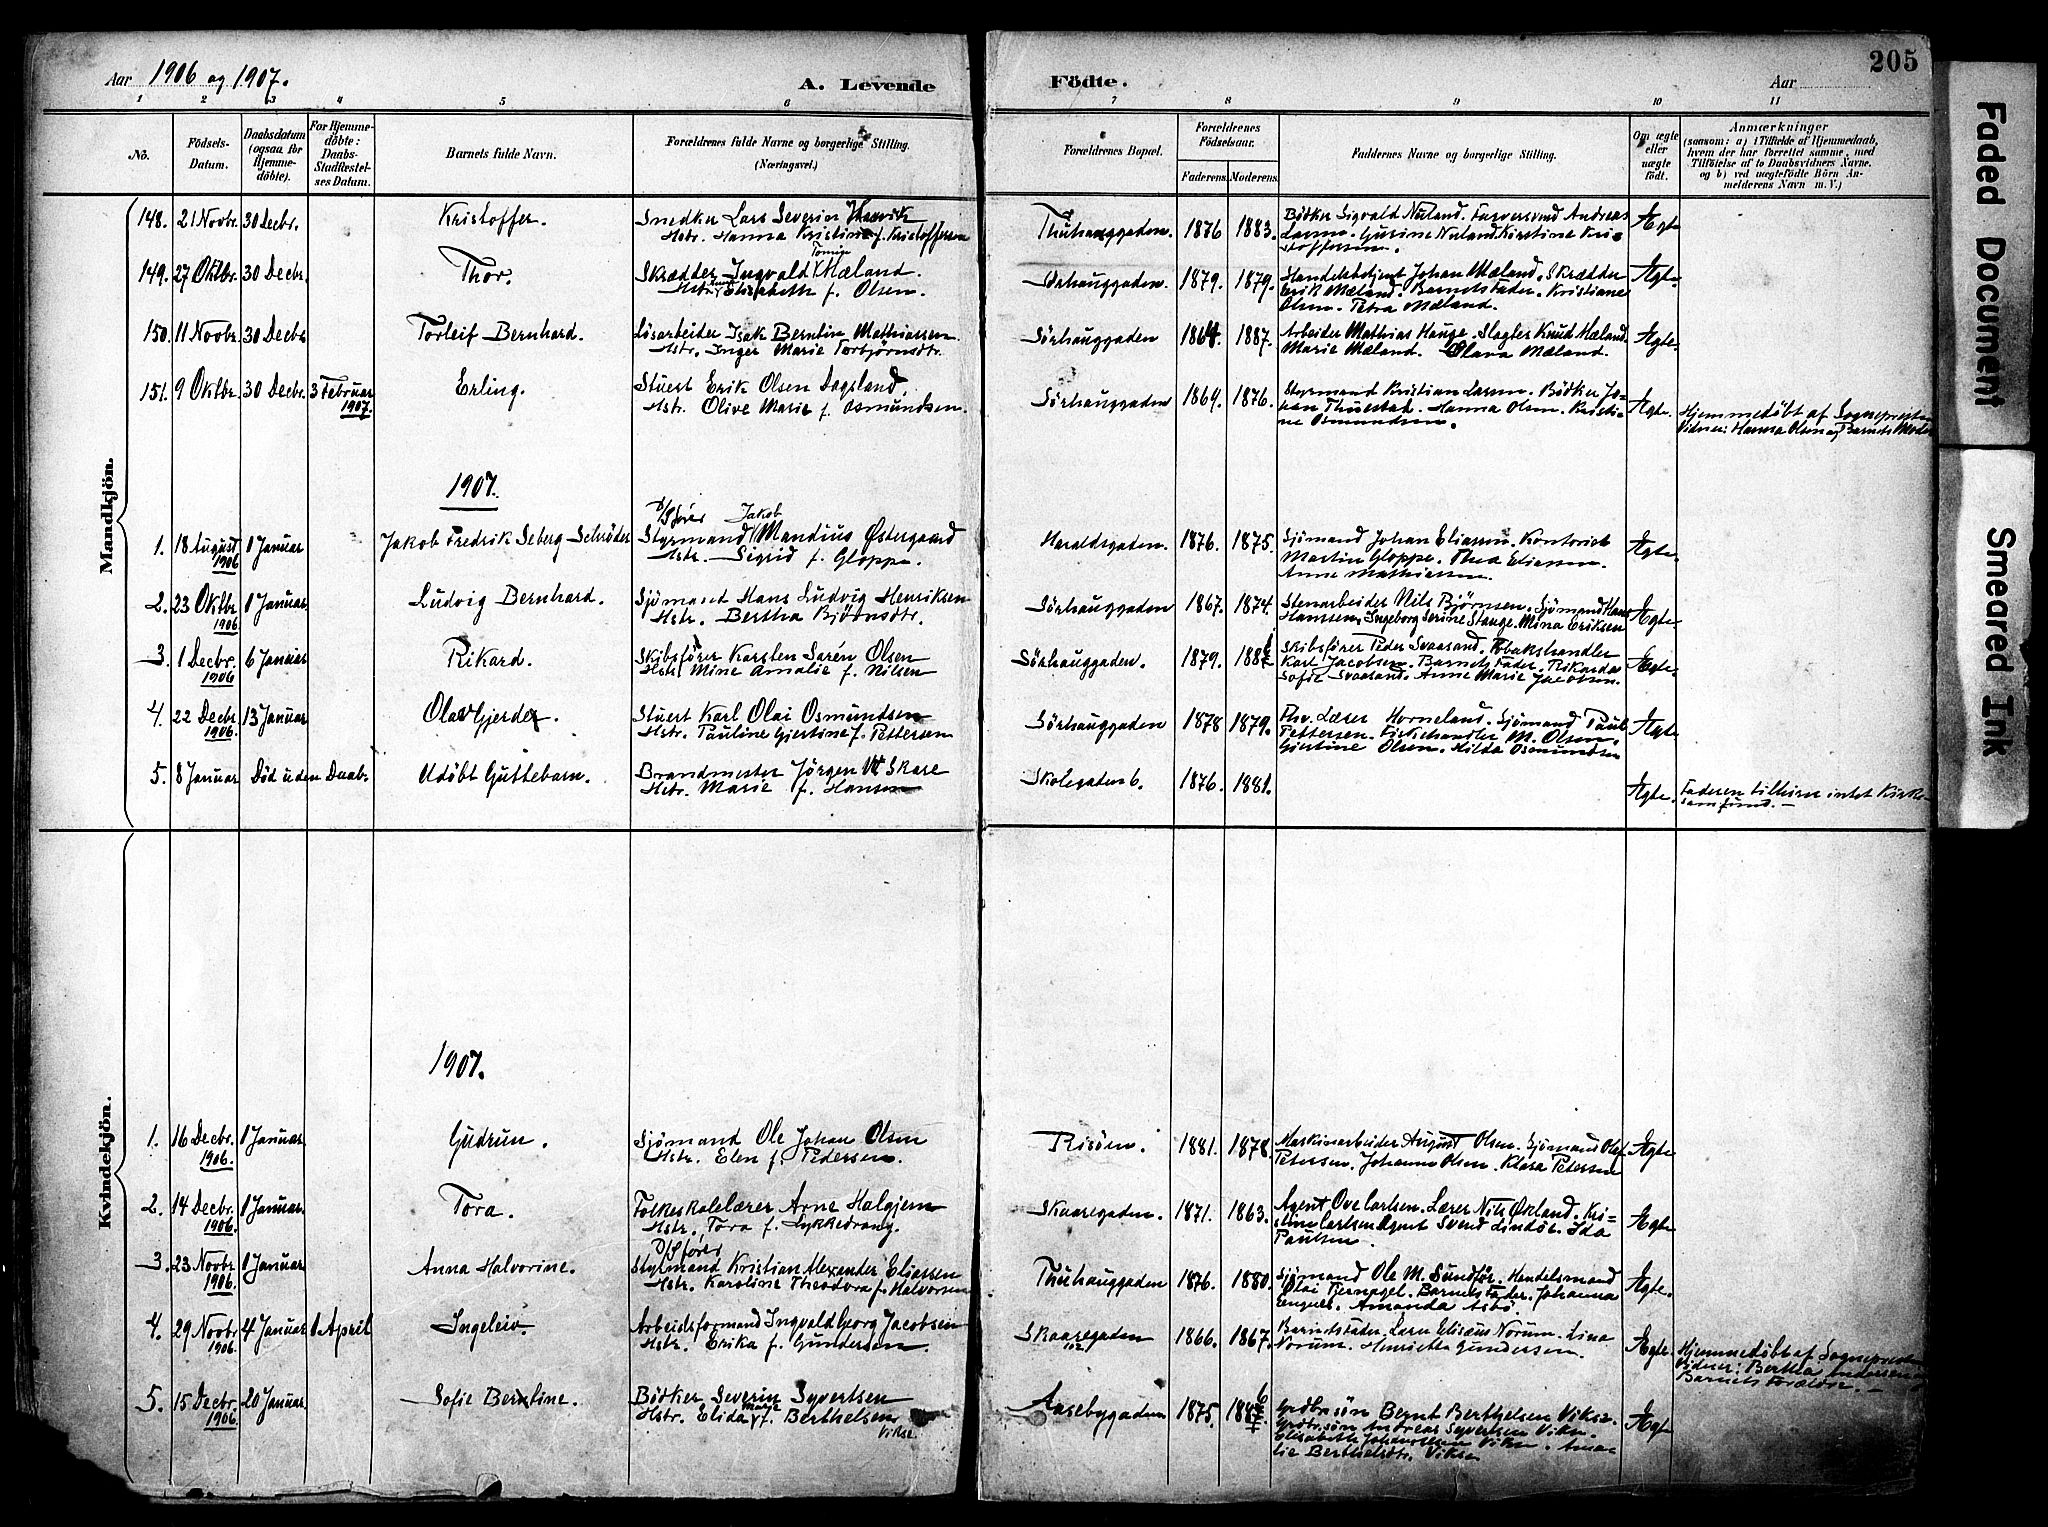 205
Aar 1906 og 1907.
A. Levende
Födte.
Aar
1 2 3 4 5 6 7 8 9 10 11
No.
Födsels-Datum.
Daabsdatum (ogsaa for Hjemme-döbte).
For Hjemme-döbte: Daabs-Stadfæstel-ses Datum.
Barnets fulde Navn.
Forældrenes fulde Navne og borgerlige Stilling. (Næringsvei.)
Forældrenes Bopæl.
Forældrenes Födselsaar.
Faderens. Moderens.
Faddernes Navne og borgerlige Stilling.
Om ægte eller uægte födt.
Anmærkninger
(saasom: a) i Tilfælde af Hjemmedaab, hvem der har forrettet samme, med Tilföielse af to Daabsvidners Navne, og b) ved uægtefödte Börn An-melderens Navn m. V.)
Mandkjön.
148. 21 Novbr. 30 Decbr. Kristoffer. Snedker Lars Severin
Hstr. Hanna Kristine f. Kristoffersen
Thuhauggaden. 1876 1883. Bödker Sigvald Nuland. Farversvend Andreas
Larsen. Gurine Nuland. Kirstine Kri-
stoffersen. Ægte
149. 27 Oktbr. 30 Decbr. Thor. Skrædder Ingvald Tonin Mæland.
Hstr. Elisabeth f. Olsen.
Sörhauggaden. 1879. 1879. Handelsbetjent Johan Mæland. Skrædder
Erik Mæland. Barnets Fader. Kristiane
Olsen. Petra Mæland. Ægte
150. 11 Novbr. 30 Decbr. Torleif Bernhard. Lösarbeider Isak Berntin Mathiassen
Hstr. Inger Marie Torbjörnsdtr.
Sörhauggaden 1864. 1887. Arbeider Mathias Hauge. Slagter Knud Mæland.
Marie Mæland. Olava Mæland. Ægte.
151. 9 Oktbr. 30 Decbr. 3 Februar 1907. Erling. Stuert Erik Olsen Dagsland.
Hstr. Olive Marie f. Osmundsen.
Sörhauggaden 1869. 1876. Styrmand Kristian Larsen. Bödker Jo-
han Thuestad. Hanna Olsen. Kristi-
ne Osmundsen. Ægte. Hjemmedöbt af Sognepresten
Vidner: Hanna Olsen og Barnets Moder
1907.
1. 18 August 1906 1 Januar Jakob Fredrik Seberg Schröder D/S förer Jakob
Styrmand Mandius Østergaard
Hstr. Sigrid f. Gloppe.
Haraldsgaden. 1876. 1875. Sjömand Johan Eliassen. Kontorist
Martin Gloppe. Thea Eliassen.
Anne Mathiassen. Ægte
2. 23 Oktbr. 1906 1 Januar Ludvig Bernhard. Sjömand Hans Ludvig Henriksen
Hstr. Bertha Bjørnsdtr.
Sörhauggaden 1867. 1874. Stenarbeider Nils Bjørnsen. Sjömand Hans
Hanssen. Ingeborg Serine Stange. Mina Eriksen Ægte
3. 1 Decbr. 1906 6 Januar Rikard. Skibsförer Karsten Sorén Olsen
Hstr. Mine Amalie f. Nilsen
Sörhauggaden. 1879. Skibsförer Peder Svaasand. Tobakshandler
Karl Jacobsen. Barnets Fader. Rikarda
Sofie Svaasand. Anne Marie Jacobsen. Ægte
4. 22 Decbr. 1906. 13 Januar Olav Gjerder. Stuert Karl Olai Osmundsen
Hstr. Pauline Gjertine f. Pettersen
Sörhauggaden 1878 1879. Lærer Horneland. Sjömand Paul
Pettersen. Fiskehandler M. Olsen.
Gjertine Olsen. Hilda Osmundsen Ægte
5. 8 Januar Död uden Daab. Udöbt Guttebarn. Brandmester Jörgen Skare
Hstr. Marie f. Hansen
Skolegaden 6. 1876. 1881. Ægte. Faderen tilhörer intet Kirke-
samfund.
Kvindekjön.
1907.
1. 16 Decbr. 1906. 1 Januar. Gudrun. Sjömand Ole Johan Olsen
Hstr. Elen f. Pedersen.
Risöen. 1881. 1878. Maskinarbeider August Olsen. Sjömand Olaf
Petersen. Johanne Olsen. Klara Petersen Ægte
2. 14 Decbr. 1906. 1 Januar. Tora. Folkeskolelærer Arne Halgjem
Hstr. Tora f. Lykkedrang
Skaaregaden. 1871. 1863. Agent Ove Carlsen. Lærer Nils Økland. Kri-
stine Carlsen Agent Svend Lindöe. Ida
Paulsen. Ægte
3. 23 Novbr. 1906. 1 Januar Anna Halvorine. D/S förer
Styrmand Kristian Alexander Eliassen
Hstr. Karoline Theodora f. Halvorsen
Thuhauggaden 1876. 1880. Sjömand Ole M. Sundför. Handelsmand
Olai Barnets Fader. Johanna
Amanda Asbö. Ægte.
4. 29 Novbr. 1906. 4 Januar 1 April Ingeleiv. Arbeidsformand Ingvald Georg Jacobsen
Hstr. Erika f. Gundersen.
Skaaregaden 102 1866. 1867. Barnets Fader. Elisæus Norum. Lina
Norum. Henriette Gundersen. Ægte. Hjemmedöbt af Sognepresten
Vidner: Bertha Andersen
Barnets Forældre.
5. 15 Decbr. 1906. 20 Januar. Sofie Berntine. Bödker Severin Syvertsen
Hstr. Elida Marie f. Berthelsen Vikse
Aasebygaden 1875. Grdbr.sön Bernt Berthelsen Vikse.
Grdbr.sön Andreas Syvertsen Vikse.
Elisabeth Vikse. Ama-
lie Berthelsdtr. Vikse Ægte
Faded Document
Smeared Ink